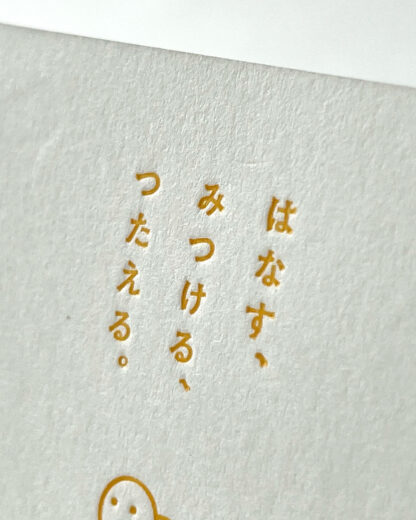 はなす、
みつける、
つたえる。